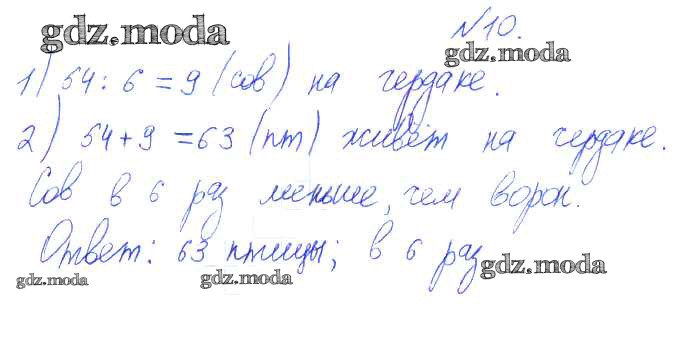 gdz.moda №10.
gdz.moda
1) 54 : 6 = 9 (сов) на чердаке.
2) 54 + 9 = 63 (пт) живёт на чердаке.
Сов в 6 раз меньше, чем ворон.
Ответ: 63 птицы; в 6 раз
gdz.moda gdz.moda gdz.moda